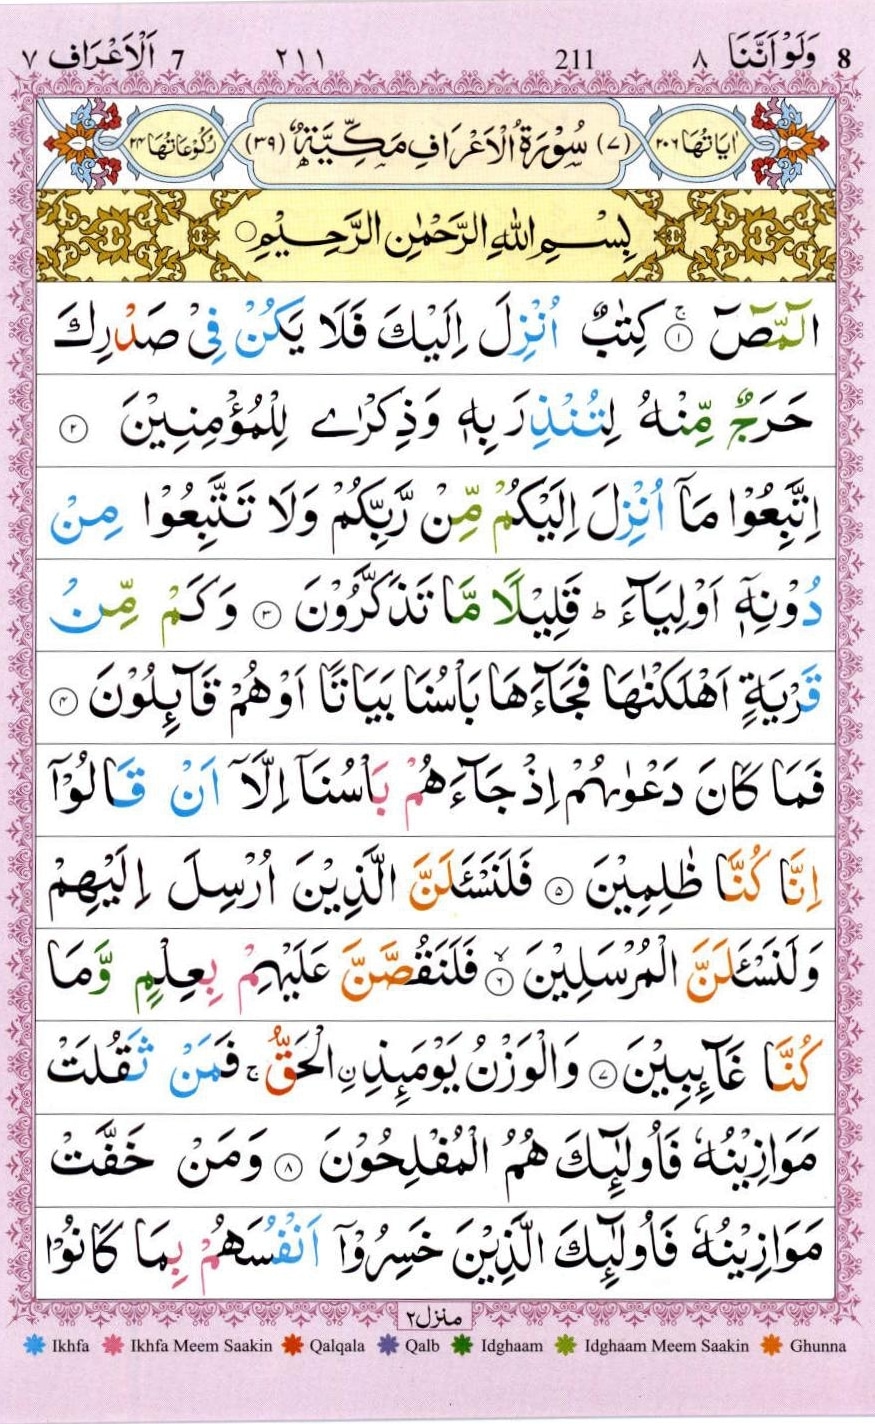 8 وَلَوْ اَنَّنَا ٨ 211 ٢١١ 7 اَلْاَعْرَاف ٧
اٰيَاتُهَا ٢٠٦ (٧) سُوْرَةُ الْاَعْرَافِ مَكِّيَّةٌ (٣٩) رُكُوْعَاتُهَا ٢٤
بِسْمِ اللّٰهِ الرَّحْمٰنِ الرَّحِيْمِ ○
الٓمّٓصٓ ۚ ١ كِتٰبٌ اُنْزِلَ اِلَيْكَ فَلَا يَكُنْ فِيْ صَدْرِكَ
حَرَجٌ مِّنْهُ لِتُنْذِرَ بِهٖ وَذِكْرٰى لِلْمُؤْمِنِيْنَ ٢
اِتَّبِعُوْا مَآ اُنْزِلَ اِلَيْكُمْ مِّنْ رَّبِّكُمْ وَلَا تَتَّبِعُوْا مِنْ
دُوْنِهٖٓ اَوْلِيَآءَ ؕ قَلِيْلًا مَّا تَذَكَّرُوْنَ ٣ وَكَمْ مِّنْ
قَرْيَةٍ اَهْلَكْنٰهَا فَجَآءَهَا بَاْسُنَا بَيَاتًا اَوْ هُمْ قَآئِلُوْنَ ٤
فَمَا كَانَ دَعْوٰىهُمْ اِذْ جَآءَهُمْ بَاْسُنَآ اِلَّآ اَنْ قَالُوْٓا
اِنَّا كُنَّا ظٰلِمِيْنَ ٥ فَلَنَسْـَٔلَنَّ الَّذِيْنَ اُرْسِلَ اِلَيْهِمْ
وَلَنَسْـَٔلَنَّ الْمُرْسَلِيْنَ ۙ ٦ فَلَنَقُصَّنَّ عَلَيْهِمْ بِعِلْمٍ وَّمَا
كُنَّا غَآئِبِيْنَ ٧ وَالْوَزْنُ يَوْمَئِذِ ࣙالْحَقُّ ۚ فَمَنْ ثَقُلَتْ
مَوَازِيْنُهٗ فَاُولٰٓئِكَ هُمُ الْمُفْلِحُوْنَ ٨ وَمَنْ خَفَّتْ
مَوَازِيْنُهٗ فَاُولٰٓئِكَ الَّذِيْنَ خَسِرُوْٓا اَنْفُسَهُمْ بِمَا كَانُوْا
منزل ٢
Ikhfa Ikhfa Meem Saakin Qalqala Qalb Idghaam Idghaam Meem Saakin Ghunna